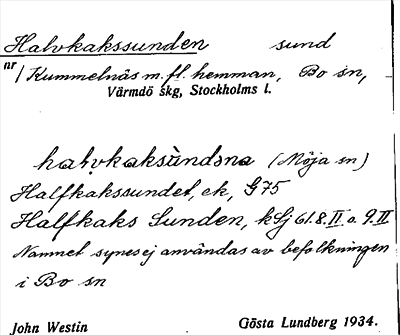 Halvkakssunden sund
nr / Kummelnäs m. fl. hemman, Bo sn,
Värmdö skg, Stockholms l.
halvkaksùndsna (Möja sn)
Halfkakssundet, ek, G 75
Halfkaks Sunden, kSj 61. 8. II o. 9. II
Namnet synes ej användas av befolkningen
i Bo sn
John Westin Gösta Lundberg 1934.